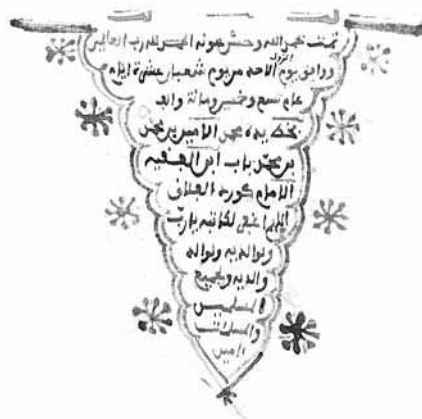 تمت بحمد الله وحسن عونه الحمد لله رب العالمين
ووافق يوم الاحد من يوم شعبان عشرة ايام
عام تسع وخمسين ومائة والف
بخط يده محمد الامير بن محمد
بن محمد باب ابن الفقيه
الامام كورد العلاني
اللهم اغفر لكاتبه يا رب
ولوالديه ولوالد
والديه ولجميع
المسلمين
والمسلمات
امين